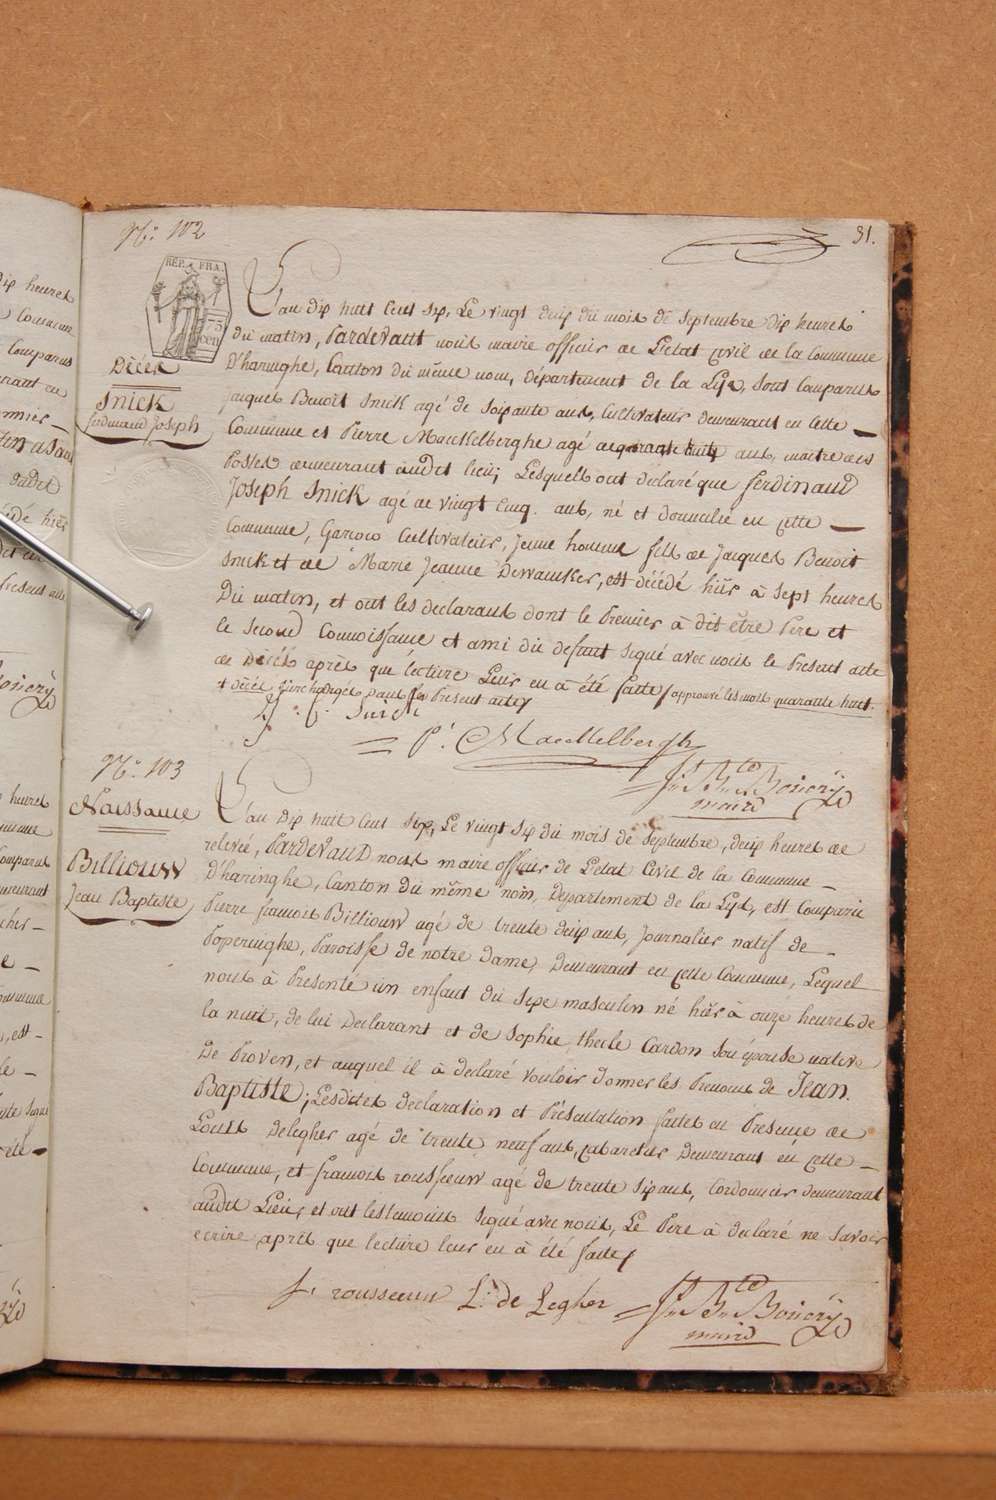 31.
N.º 102
REP. FRA.
75
cen
Décès
Snick
ferdinand Joseph
L'an dix huit Cent six, Le vingt deux du mois de Septembre dix heures
du matin, Pardevant nous maire officier de L'etat civil de la Commune
D'haringhe, Canton du même nom, département de la Lys, sont Comparus
jacques Benoit Snick agé de soixante ans, Cultivateur demeurant en cette
Commune et Pierre Mackelberghe agé de quarante huit ans, maitre des
Postes demeurant audit lieu; Lesquels ont déclaré que ferdinand
Joseph Snick agé de vingt Cinq ans, né et domicilié en cette
Commune, Garcon Cultivateur, jeune homme fils de Jacques Benoit
Snick et de Marie Jeanne Dewancker, est décédé hier à sept heures
Du matin, et ont les declarans dont le Premier à dit être Pere et
le second Connoissance et ami du defunt signé avec nous le Present acte
de Décès après que lecture Leur en à été faite / approuvé les mots quarante huit.
+ décès surchargés dans le Present acte /
J. B. Snick
P. Mackelbergh
Jn Bte Bonery
maire
N.º 103
Naissance
Billiouw
Jean Baptiste
L'an Dix huit Cent Six, Le vingt six du mois de Septembre, deux heures de
relevée, Pardevant nous maire officier de L'etat Civil de la Commune
D'haringhe, Canton du même nom, Département de la Lys, est Comparu
Pierre francois Billiouw agé de trente deux ans, Journalier natif de
Poperinghe, Paroisse de notre dame, Demeurant en cette Commune, Lequel
nous à Presenté un enfant du sexe masculin né hier à onze heures de
la nuit, de lui Declarant et de Sophie thecle Cardon son épouse native
De Proven, et auquel il à declaré vouloir donner les Prenoms de Jean
Baptiste; Lesdites declaration et Présentation faites en Presence de
Louis Delegher agé de trente neuf ans, cabaretier Demeurant en cette
Commune, et francois rousseeuw agé de trente six ans, Cordonnier demeurant
audit Lieu, et ont les temoins signé avec nous, Le Pere à declaré ne savoir
ecrire après que lecture leur en à été faite /
f. rousseeuw L. de Legher
Jn Bte Bonery
maire